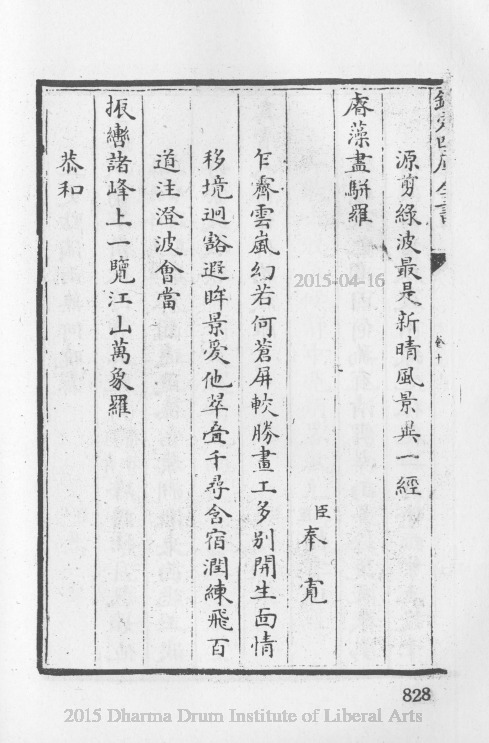 欽定四庫全書
卷十
源剪綠波最是新晴風景異一經
睿藻盡駢羅
臣奉寬
乍霽雲嵐幻若何蒼屏較勝畫工多別開生面情
移境迥豁遐眸景愛他翠疊千尋含宿潤練飛百
道注澄波會當
振轡諸峰上一覽江山萬象羅
恭和
2015-04-16
828
2015 Dharma Drum Institute of Liberal Arts